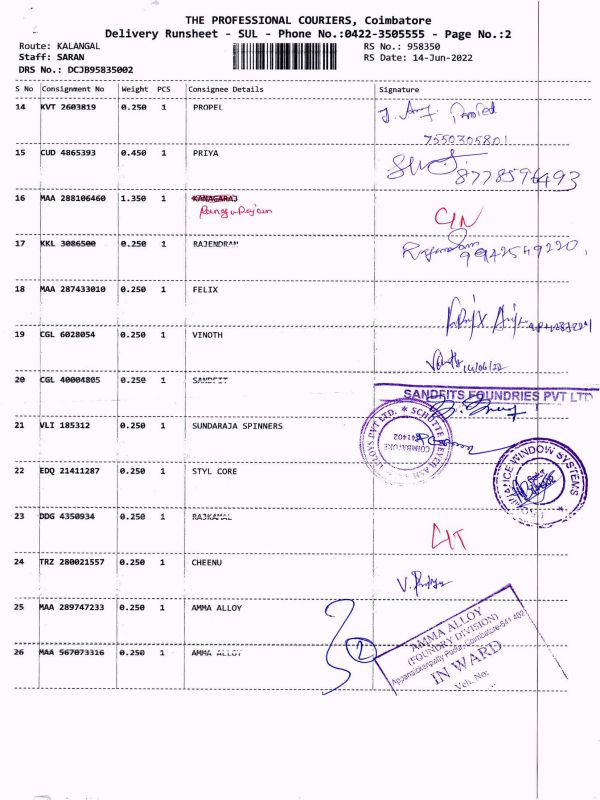 THE PROFESSIONAL COURIERS, Coimbatore
Delivery Runsheet - SUL - Phone No.:0422-3505555 - Page No.:2
Route: KALANGAL RS No.: 958350
Staff: SARAN RS Date: 14-Jun-2022
DRS No.: DCJB95835002
S No Consignment No Weight PCS Consignee Details Signature
14 KVT 2603819 0.250 1 PROPEL
7550305801
15 CUD 4865393 0.450 1 PRIYA
8778596493
16 MAA 288106460 1.350 1 KANAGARAJ
17 KKL 3086500 0.250 1 RAJENDRAN
9942549220
18 MAA 287433010 0.250 1 FELIX
19 CGL 6028054 0.250 1 VINOTH
14/06/22
20 CGL 40004805 0.250 1 SANDFIT
SANDFITS FOUNDRIES PVT LTD
21 VLI 185312 0.250 1 SUNDARAJA SPINNERS
COIMBATORE
641402
22 EDQ 21411287 0.250 1 STYL CORE
WINDOW SYSTEMS
23 DDG 4350934 0.250 1 RAJKAMAL
24 TRZ 280021557 0.250 1 CHEENU
25 MAA 289747233 0.250 1 AMMA ALLOY
26 MAA 567073316 0.250 1 AMMA ALLOY
2
AMMA ALLOY
(FOUNDRY DIVISION)
IN WARD
Veh. No: